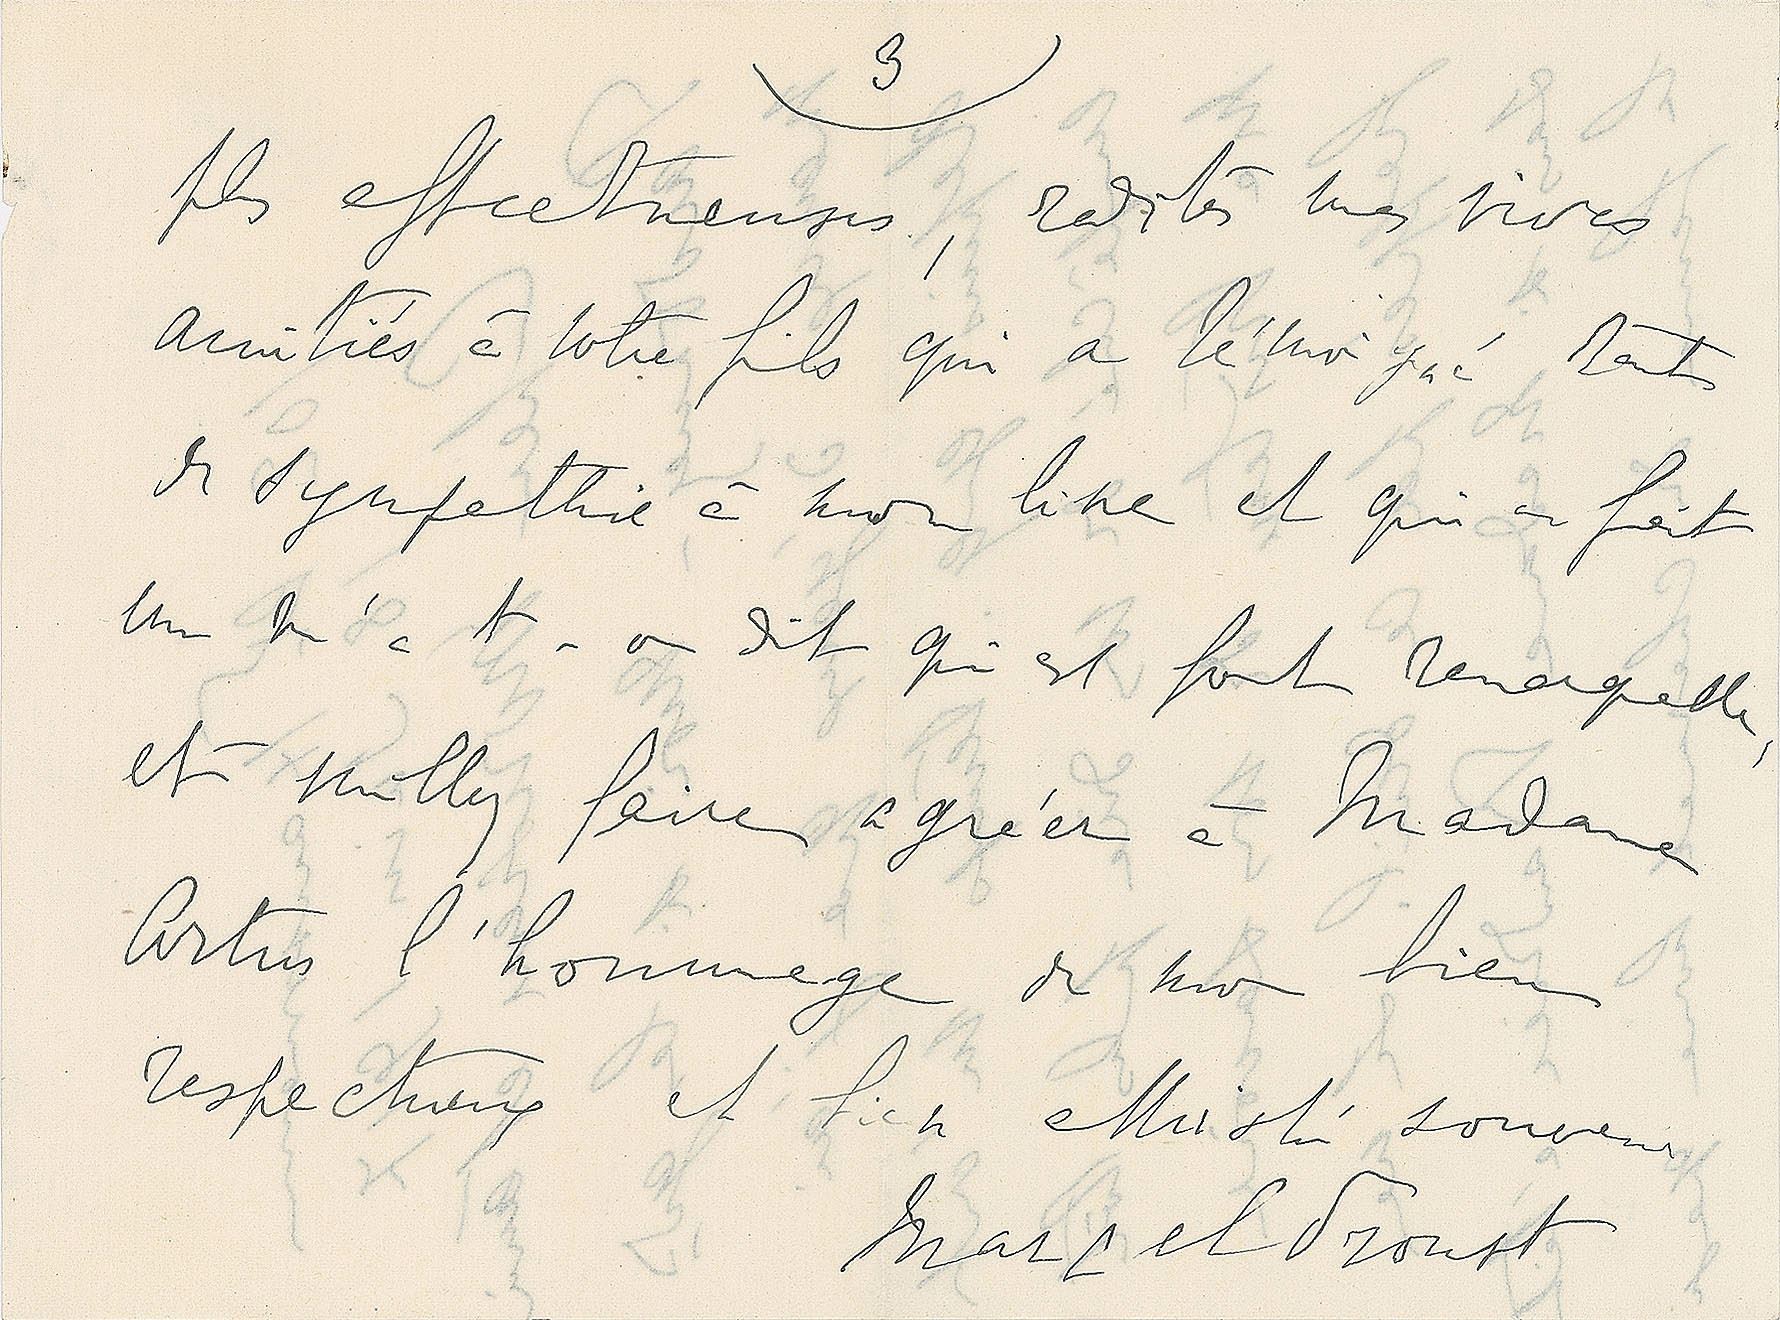 3
plus affectueuses, redites mes vives
amitiés à votre fils qui a témoigné tant
de sympathie à mon livre et qui en fait
un m'a t-on dit qui est fort remarquable,
et veuillez faire agréer à Madame
Artus l'hommage de mon bien
respectueux et bien attristé souvenir
Marcel Proust